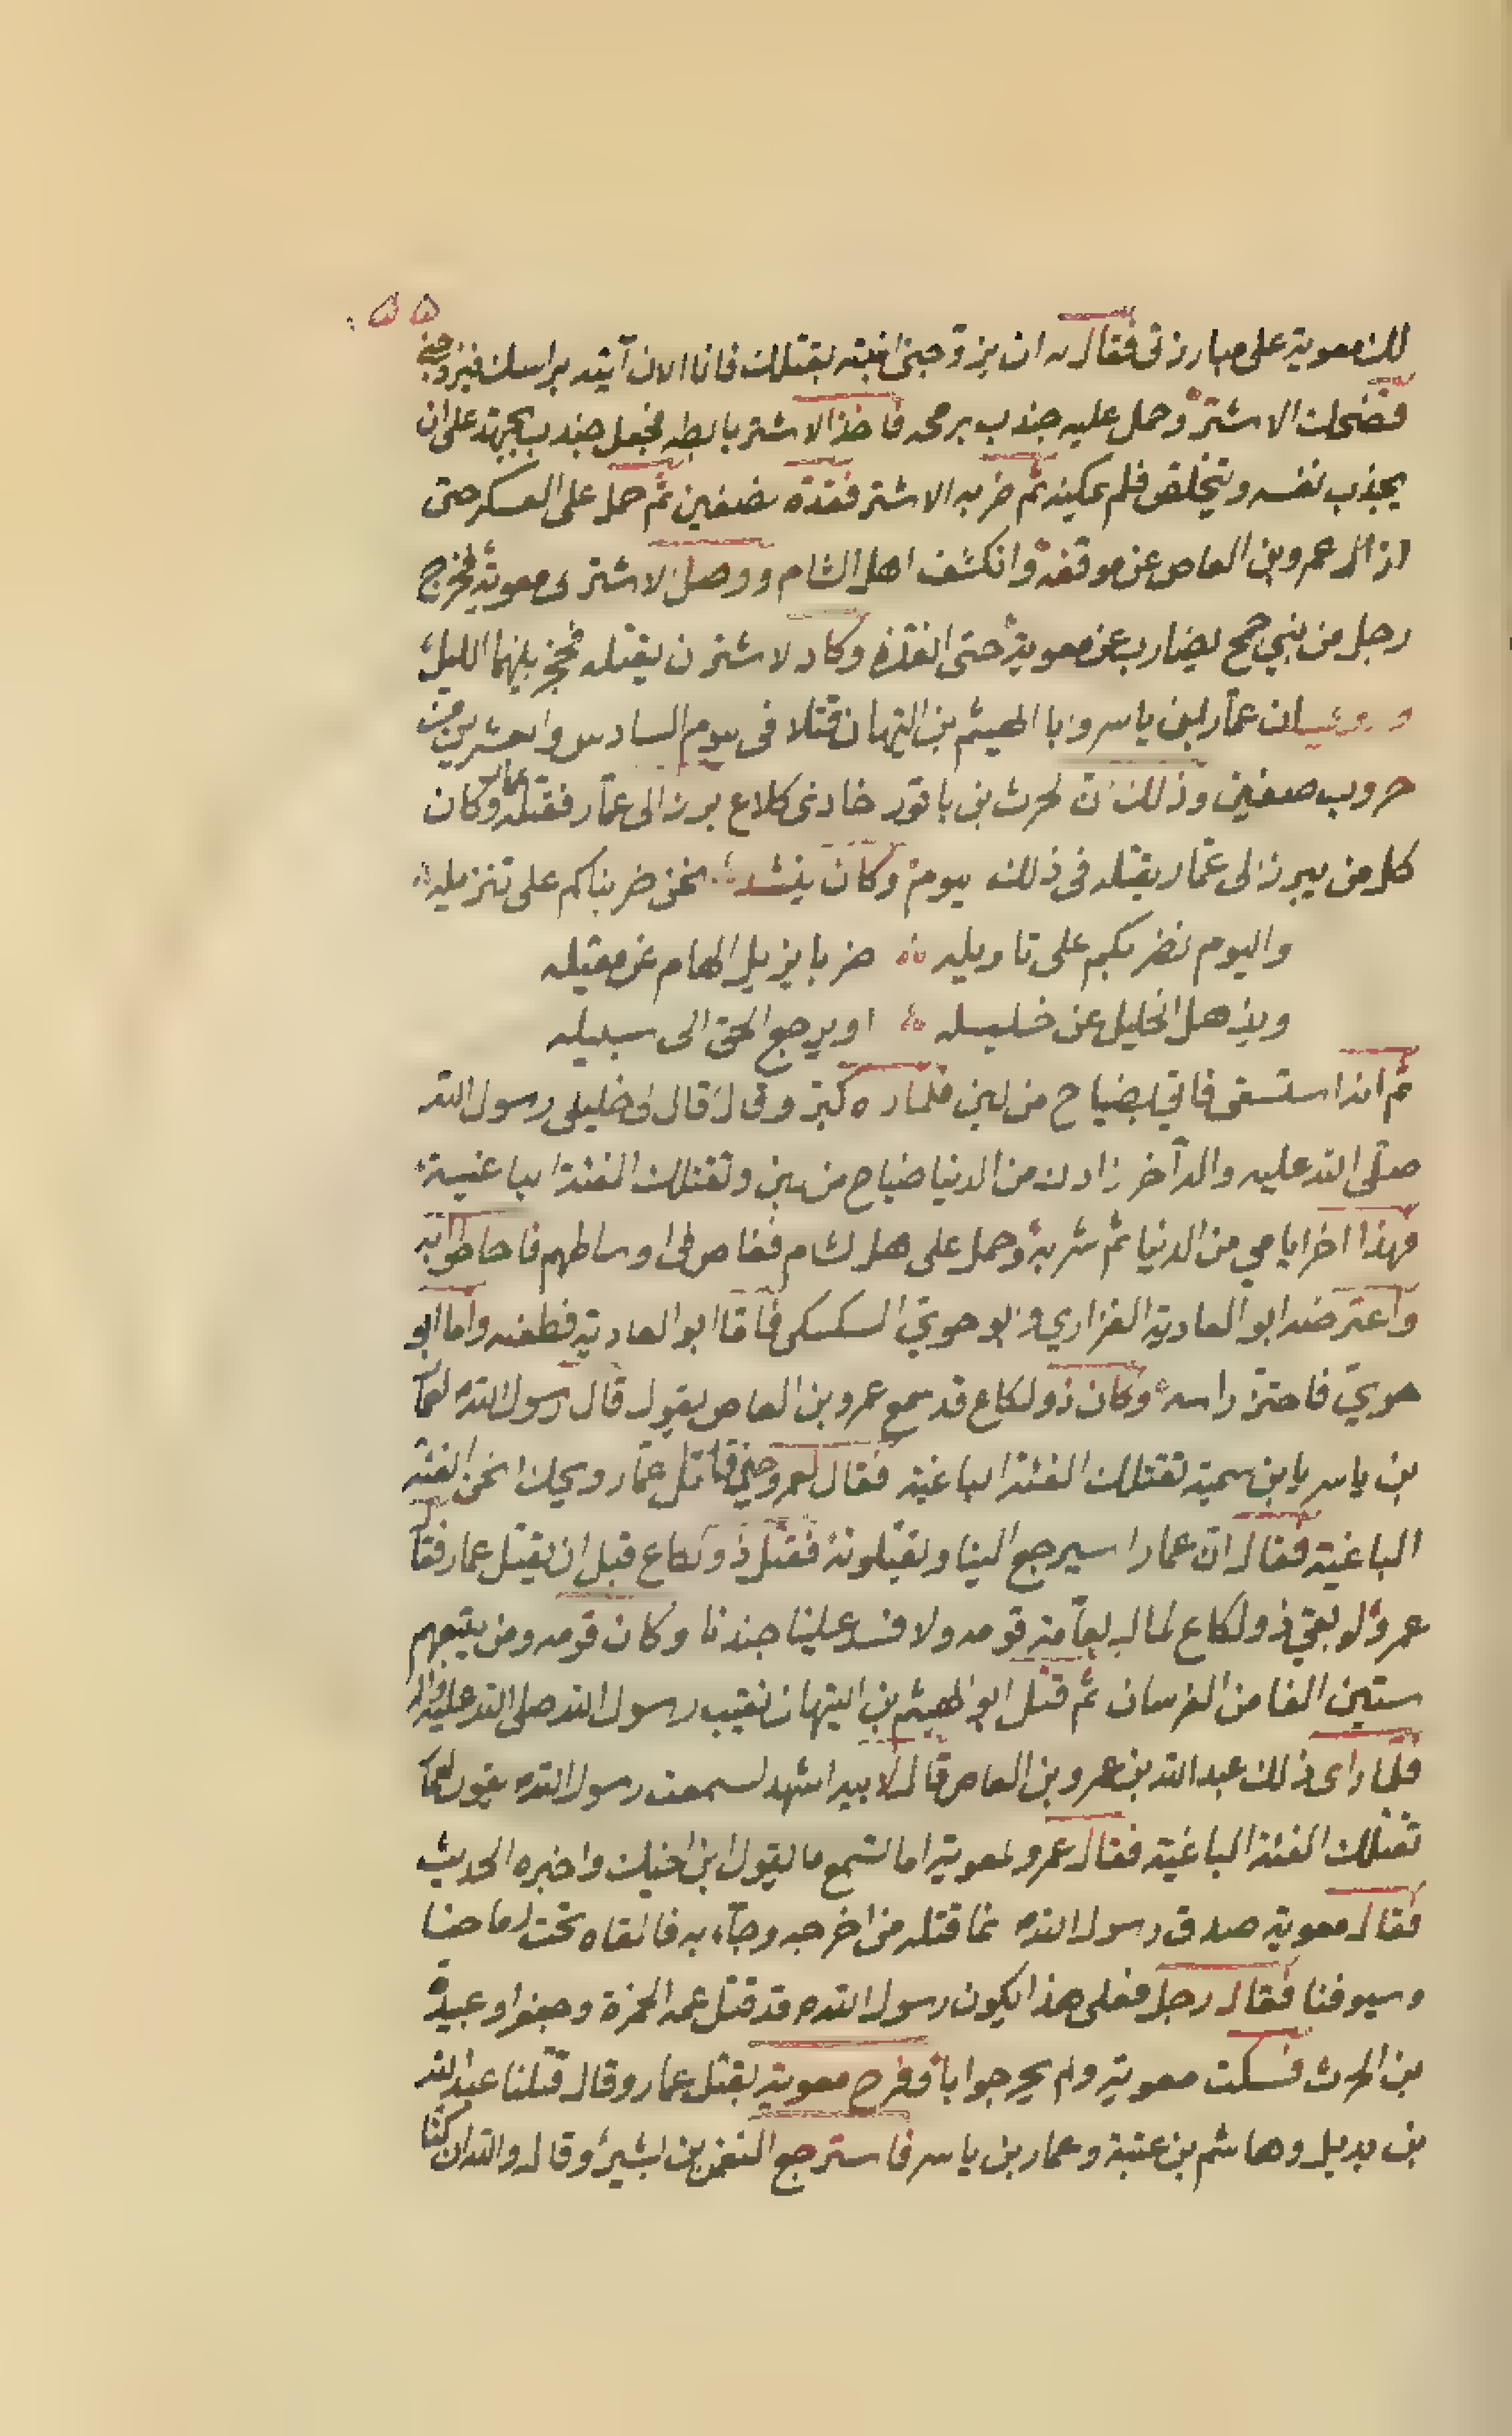 ٥٥
لك معوية على مبارزتى فقال له ان يزوجنى ابنته بقتلك فانا الان آتيه براسك فيزوجنى
فضحك الاشتر وحمل عليه جندب برمحه فاخذ الاشتر بابطه فجعل جندب يجهد على ان
يجذب نفسه ويتخلص فلم يمكنه ثم ضربه الاشتر فقده نصفين ثم حمل على العسكر حتى
ازال عمرو بن العاص عن موقفه وانكشف اهل الشام ووصل الاشتر الى معوية فخرج
رجل من بني جمح يضارب عن معوية حتى انقذه وكاد الاشتر ان يقتله فحجز بينهما الليل
وروى ان عمار بن ياسر وابا الهيثم بن التيهان قتلا فى يوم السادس والعشرين من
حروب صفين وذلك ان الحرث بن باقور اخا ذى كلاع برز الى عمار فقتله عمار وكان
كل من يبرز الى عمار يقتله فى ذلك يوم وكان ينشد نحن ضربناكم على تنزيله
واليوم نضربكم على تاويله ضربا يزيل الهام عن مقيله
ويذهل الخليل عن خليله او يرجع الحق الى سبيله
ثم انه استسقى فاتي بضياح من لبن فلما راه كبر وقال قال لى خليلى رسول الله
صلى الله عليه واله آخر زادك من الدنيا ضياح من لبن وتقتلك الفئة الباغية
فهذا اخر ايامي من الدنيا ثم شربه وحمل على اهل الشام فغاص فى اوساطهم فاحاطوا به
واعترضه ابو العادية الفزاري وابو حوي السكسكى فاما ابو العادية فطعنه واما ابو
حوي فاحتز راسه وكان ذو لكلاع قد سمع عمرو بن العاص يقول قال رسول الله لعمار
بن ياسر يا بن سمية تقتلك الفئة الباغية فقال لعمرو حين قاتل عمار ويحك انحن الفئة
الباغية فقال ان عمارا سيرجع الينا وتقبلونه فقتل ذو كلاع قبل ان يقتل عمار فقال
عمرو لو بقي ذو لكلاع لمال بعامة قومه ولافسد علينا جندنا وكان قومه ومن يتبعهم
ستين الفا من الفرسان ثم قتل ابو الهيثم بن التيهان نقيب رسول الله صلى الله عليه واله
فلما راى ذلك عبد الله بن عمرو بن العاص قال لابيه اشهد لسمعت رسول الله يقول لعمار
تقتلك الفئة الباغية فقال عمرو لمعوية اما تسمع ما يقول ابن اخيك واخبره الحديث
فقال معوية صدق رسول الله انما قتله من اخرجه وجاء به فالقاه تحت رماحنا
وسيوفنا فقال رجل فعلى هذا يكون رسول الله قد قتل عمه الحمزة وجعفرا وعبيدة
بن الحرث فسكت معوية ولم يحر جوابا وفرح معوية بقتل عمار وقال قتلنا عبد الله
بن بديل وهاشم بن عتبة وعمار بن ياسر فاسترجع النعمن بن بشير وقال والله ان كنا